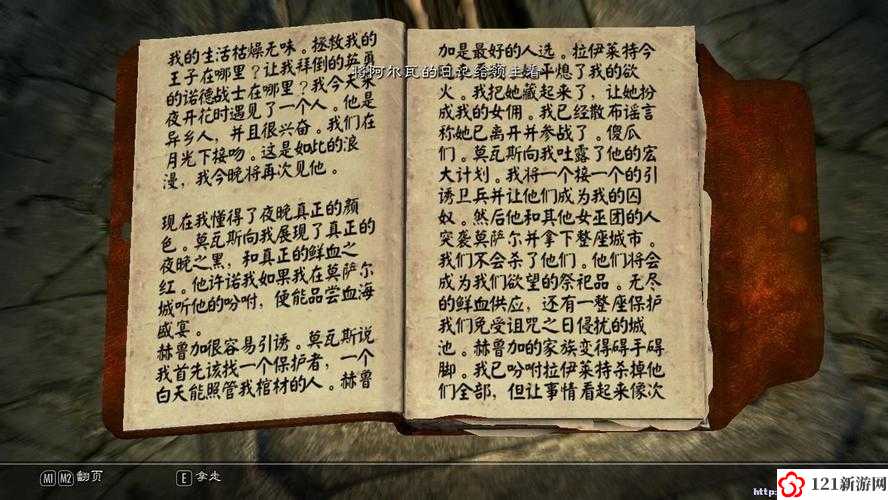 我的生活枯燥无味。拯救我的
王子在哪里？让我拜倒的英勇
的诺德战士在哪里？我今天采
夜开花时遇见了一个人。他是
异乡人，并且很兴奋。我们在
月光下接吻。这是如此的浪
漫，我今晚将再次见他。
现在我懂得了夜晚真正的颜
色。莫瓦斯向我展现了真正的
夜晚之黑，和真正的鲜血之
红。他许诺我如果我在莫萨尔
城听他的吩咐，便能品尝血海
盛宴。
赫鲁加很容易引诱。莫瓦斯说
我首先该找一个保护者，一个
白天能照管我棺材的人。赫鲁
加是最好的人选。拉伊莱特今
熄了我的欲
火。我把她藏起来了，让她扮
成我的女佣。我已经散布谣言
称她已离开并参战了。傻瓜
们。莫瓦斯向我吐露了他的宏
大计划。我将一个接一个的引
诱卫兵并让他们成为我的囚
奴。然后他和其他女巫团的人
突袭莫萨尔并拿下整座城市。
我们不会杀了他们。他们将会
成为我们欲望的祭祀品。无尽
的鲜血供应，还有一整座保护
我们免受诅咒之日侵扰的城
池。赫鲁加的家族变得碍手碍
脚。我已吩咐拉伊莱特杀掉他
们全部，但让事情看起来像次
将阿尔瓦的日记给领主看
M1 M2 翻页 E 拿走
121新游网
http: